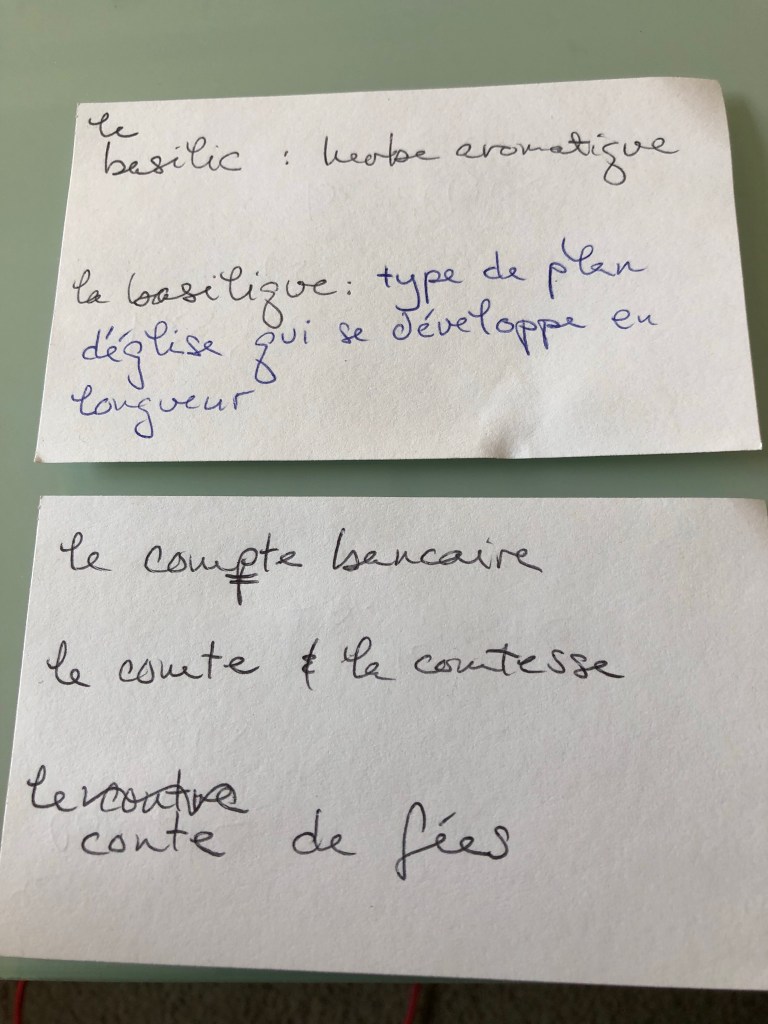 le
basilic : herbe aromatique
la basilique: type de plan
d'église qui se développe en
longueur
le compte bancaire
le comte & la comtesse
le
conte de fées